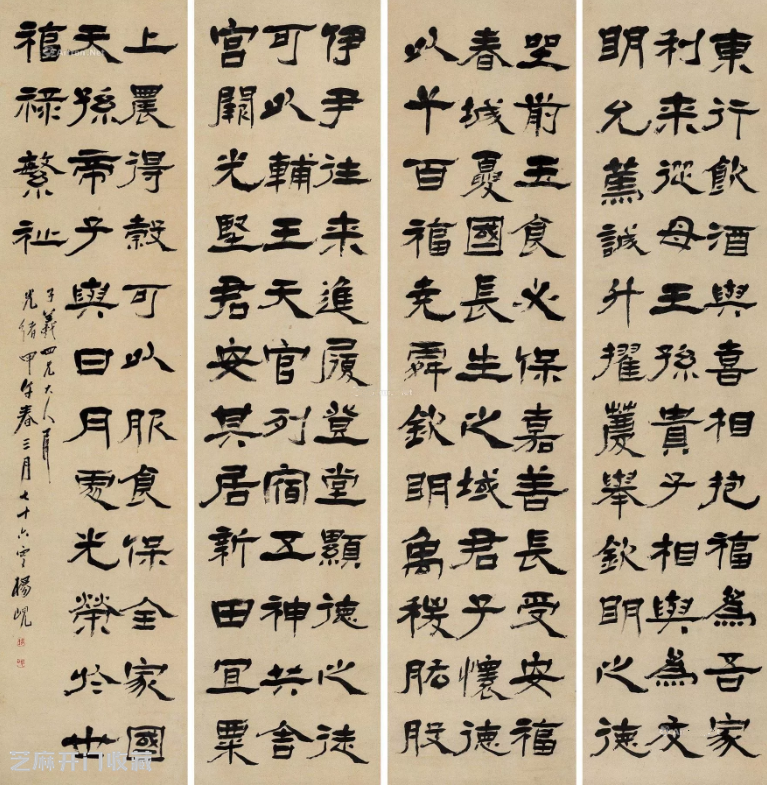 東行飲酒與喜相抱福為吾家
利来從母王孫貴子相與為友
明允篤誠升擢薦舉欽明之德
坐前玉食必保嘉善長受安福
春城夏國長生之域君子懷德
以千百福堯舜欽明禹稷股肱
伊尹往来進履登堂顯德之徒
可以輔王天官列宿五神共舍
宮闕光堅君安其居新田宜粟
上農得穀可以服食保全家國
天孫帝子與日月處光榮於世
福祿繁祉
子義四兄大人
光緒甲午春三月七十六叟楊峴
芝麻开门收藏